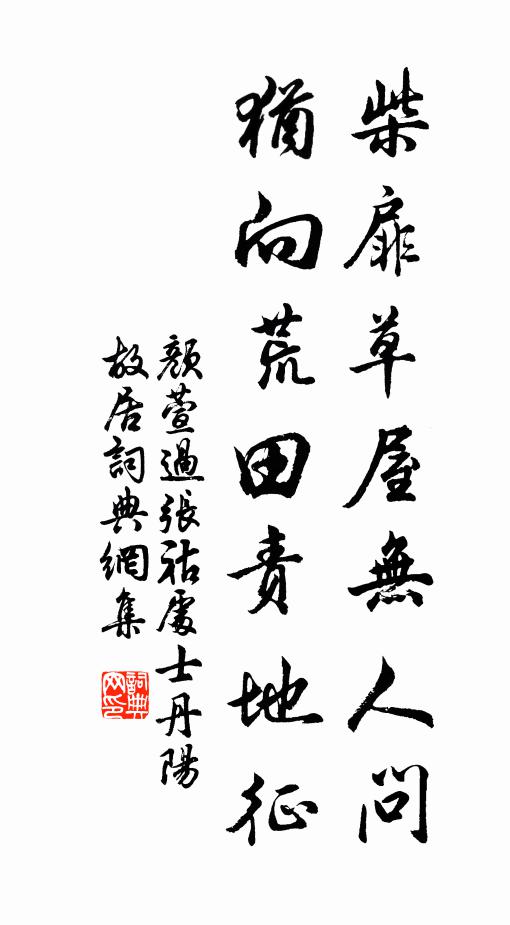 柴扉草屋無人問
猶向荒田責地征
顏萱過張祜處士丹陽
故居詞典網集
詞典
网印